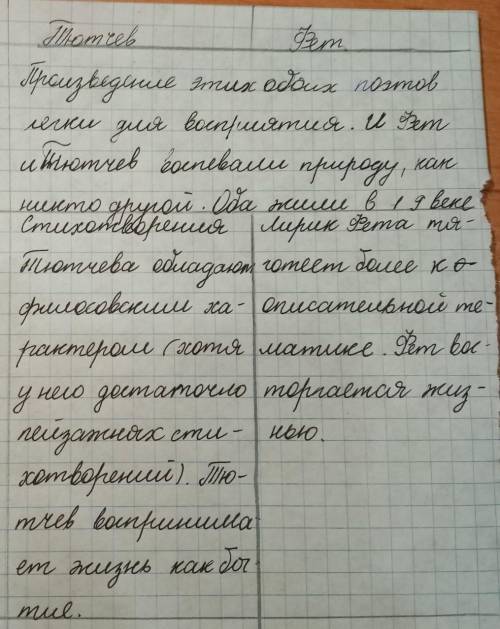 Тютчев Фет
Произведение этих обоих поэтов
легки для восприятия. И Фет
и Тютчев воспевали природу, как
никто другой. Оба жили в 19 веке
Стихотворения
Тютчева обладают
философским ха-
рактером (хотя
у него достаточно
пейзажных сти-
хотворений). Тю-
тчев воспринима
ет жизнь как бы-
тие.
Лирик Фета тя-
готеет более к о-
описательной те-
матике. Фет вос-
торгается жиз-
нью.